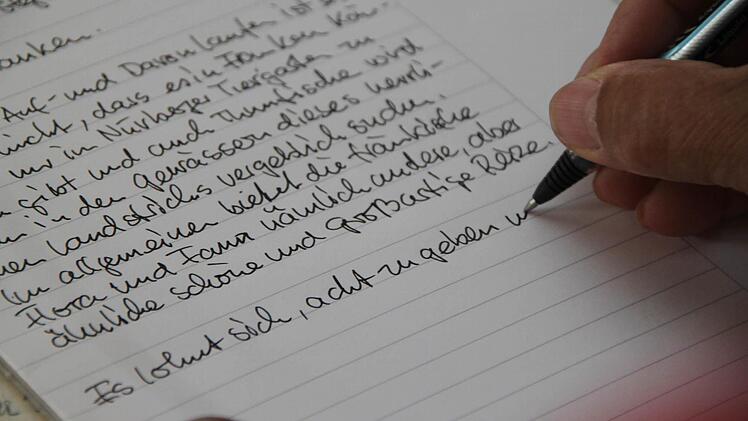 anken.
Auf- und Davonlaufen ist
nicht, dass es in Franken Kän-
nur im Nürnberger Tiergarten zu
gibt und auch Thunfische wird
in den Gewässern dieses herrli-
en Landstrichs vergeblich suchen.
Im allgemeinen bietet die fränkische
Flora und Fauna nämlich andere, aber
ähnliche schöne und großartige Reize.
Es lohnt sich, acht zu geben